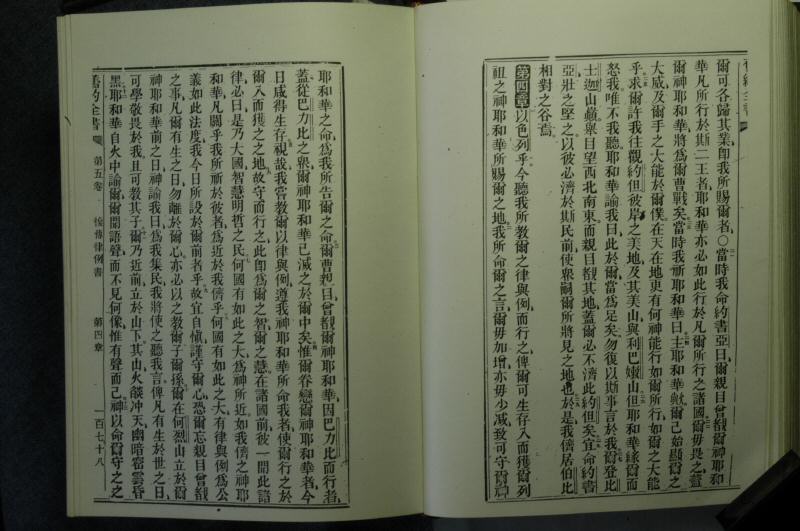 舊約全書
爾可各歸其業卽我所賜爾者○當時我命約書亞曰爾親目曾覩爾神耶和
華凡所行於斯二王者耶和華亦必如此行於凡爾所行之諸國爾毋畏之蓋
爾神耶和華將爲爾曹戰矣當時我祈耶和華曰主耶和華歟爾已始顯爾之
大威及爾手之大能於爾僕在天在地更有何神能行如爾所行如爾之大能
乎求爾許我往觀約但彼岸之美地及其美山與利巴嫩山但耶和華緣爾而
怒我唯不我聽耶和華諭我曰此於爾當爲足矣勿復以斯事言於我爾登比
士迦山巔舉目望西北南東而親目覩其地蓋爾必不濟此約但矣宜命約書
亞壯之堅之以彼必濟於斯民前使衆嗣爾所將見之地也於是我儕居伯比
相對之谷焉
第四章以色列乎今聽我所教爾之律與例而行之俾爾可生存入而獲爾列
祖之神耶和華所賜爾之地我所命爾之言爾毋加增亦毋少減致可守爾神
耶和華之命爲我所告爾之命爾曹親目曾覩爾神耶和華因巴力比而行者
蓋從巴力比之衆爾神耶和華已滅之於爾中矣惟爾眷戀爾神耶和華者今
日咸得生存視哉我嘗教爾以律與例遵我神耶和華所命我者使爾行之於
爾入而獲之之地故守而行之此卽爲爾之智爾之慧在諸國前彼一聞此諸
律必曰是乃大國智慧明哲之民何國有如此之大爲神所近如我儕之神耶
和華凡關乎我所祈於彼者爲近於我儕乎何國有如此之大有律與例爲公
義如此法度我今日所設於爾前者乎故宜自愼謹守爾心恐爾忘親目曾覩
之事凡爾有生之日勿離於爾心亦必以之教爾子爾孫爾在何烈山立於爾
神耶和華前之日神諭我曰爲我集民我將使之聽我言俾凡有生於世之日
可學敬畏於我且可教其子爾乃近前立於山下其山火燄冲天幽暗密雲昏
黑耶和華自火中諭爾爾聞語聲而不見何像惟有聲而已神以命爾守之之
舊約全書 第五卷 復傳律例書 第四章 一百七十八